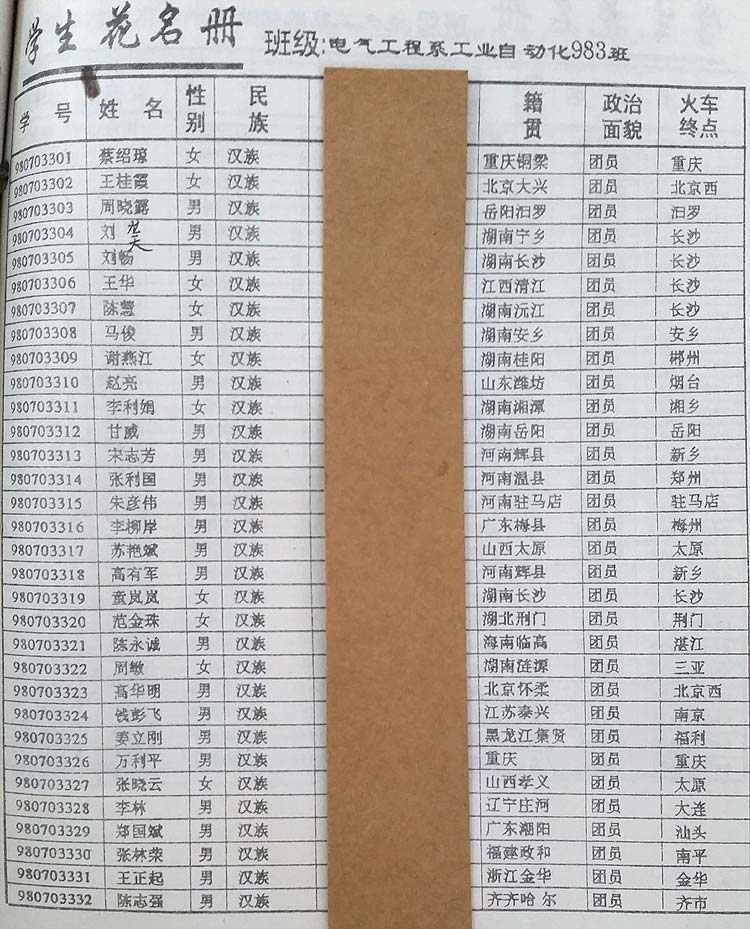 学生花名册 班级:电气工程系工业自动化983班
学号 姓名 性别 民族 籍贯 政治面貌 火车终点
980703301 蔡绍琼 女 汉族 重庆铜梁 团员 重庆
980703302 王桂霞 女 汉族 北京大兴 团员 北京西
980703303 周晓露 男 汉族 岳阳汨罗 团员 汨罗
980703304 刘 男 汉族 湖南宁乡 团员 长沙
980703305 刘畅 男 汉族 湖南长沙 团员 长沙
980703306 王华 女 汉族 江西清江 团员 长沙
980703307 陈慧 女 汉族 湖南沅江 团员 长沙
980703308 马俊 男 汉族 湖南安乡 团员 安乡
980703309 谢燕江 女 汉族 湖南桂阳 团员 郴州
980703310 赵亮 男 汉族 山东潍坊 团员 烟台
980703311 李利娟 女 汉族 湖南湘潭 团员 湘乡
980703312 甘威 男 汉族 湖南岳阳 团员 岳阳
980703313 宋志芳 男 汉族 河南辉县 团员 新乡
980703314 张利国 男 汉族 河南温县 团员 郑州
980703315 朱彦伟 男 汉族 河南驻马店 团员 驻马店
980703316 李柳岸 男 汉族 广东梅县 团员 梅州
980703317 苏艳斌 男 汉族 山西太原 团员 太原
980703318 高有军 男 汉族 河南辉县 团员 新乡
980703319 袁岚岚 女 汉族 湖南长沙 团员 长沙
980703320 范金珠 女 汉族 湖北荆门 团员 荆门
980703321 陈永诚 男 汉族 海南临高 团员 湛江
980703322 周敏 女 汉族 湖南涟源 团员 三亚
980703323 高华明 男 汉族 北京怀柔 团员 北京西
980703324 钱彭飞 男 汉族 江苏泰兴 团员 南京
980703325 姜立刚 男 汉族 黑龙江集贤 团员 福利
980703326 万利平 男 汉族 重庆 团员 重庆
980703327 张晓云 女 汉族 山西孝义 团员 太原
980703328 李林 男 汉族 辽宁庄河 团员 大连
980703329 郑国斌 男 汉族 广东潮阳 团员 汕头
980703330 张林荣 男 汉族 福建政和 团员 南平
980703331 王正起 男 汉族 浙江金华 团员 金华
980703332 陈志强 男 汉族 齐齐哈尔 团员 齐市